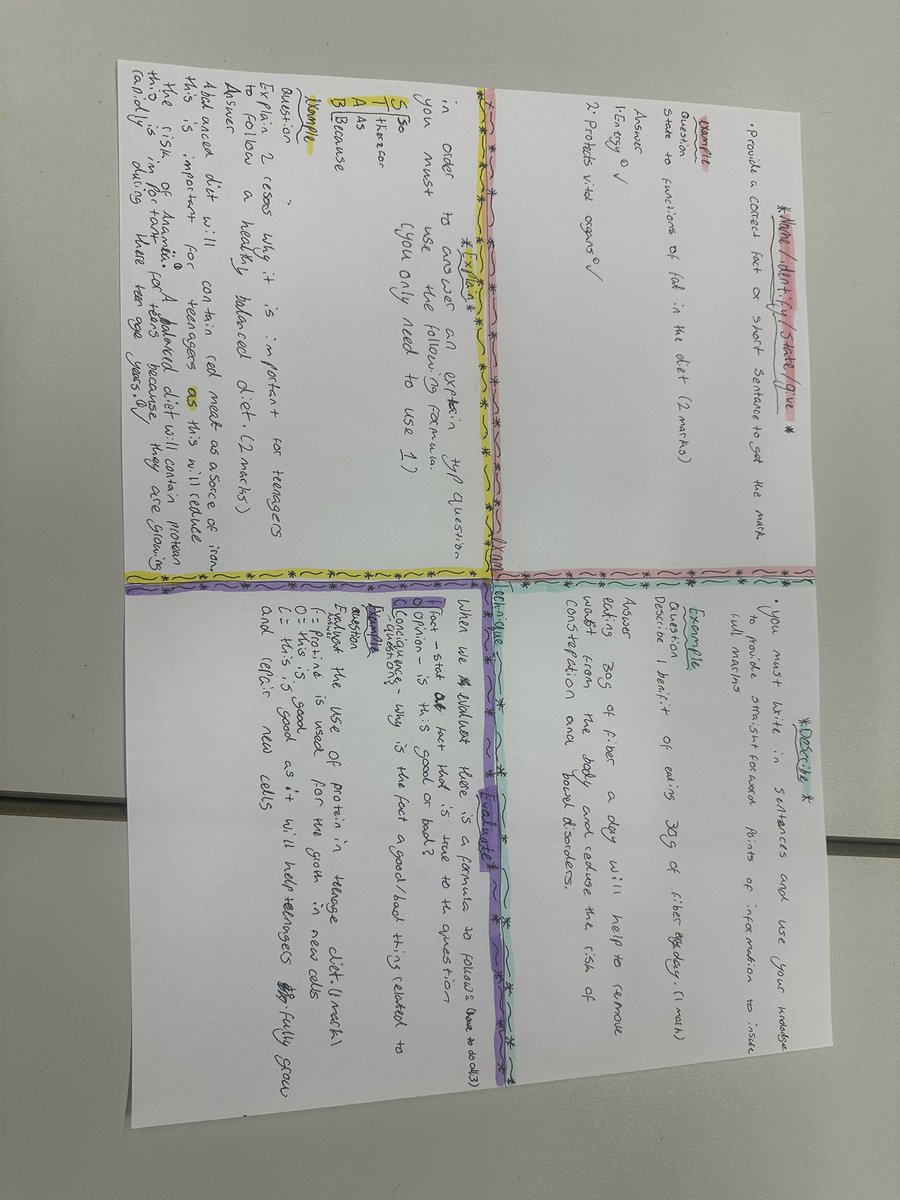 *Name/identify/state/give*
• Provide a correct fact or short sentance to get the mark
example
Question
State to functions of fat in the diet (2 marks)
Answer
1. Energy ✓
2. Protects vital organs ✓
*Describe*
• you must write in sentences and use your knoledge
to provide straight forward points of infomation to insure
full marks
Example
Question
Describe 1 benifit of eating 30g of fiber a day. (1 mark)
Answer
eating 30g of fiber a day will help to remove
waist from the body and reduse the risk of
constepation and bowel disorders.
Exam Technique
*Explain*
in order to answer an explain typ question
you must use the following formula
(you only need to use 1)
S So
T therefor
A As
B Because
Example
question
Explain 2 resons why it is important for teenagers
to follow a healthy balanced diet. (2 marks)
Answer
A balanced diet will contain red meat as a sorce of iron
this is important for teenagers as this will reduce
the risk of anamia. A balanced diet will contain protean
this is important for teens because they are growing
rapidly during there teen age years.
*Evaluate*
When we evaluat there is a formula to follow: (have to do all 3)
F Fact - stat a fact that is true to th question
O Opinion - is this good or bad?
C Conciquence - why is the fact a good/bad thing related to
question?
Example
question
Evaluat the use of protein in teenage diet. (1 mark)
Answer
F = Protine is used for the groth in new cells
O = this is good
C = this is good as it will help teenagers fully grow
and repair new cells